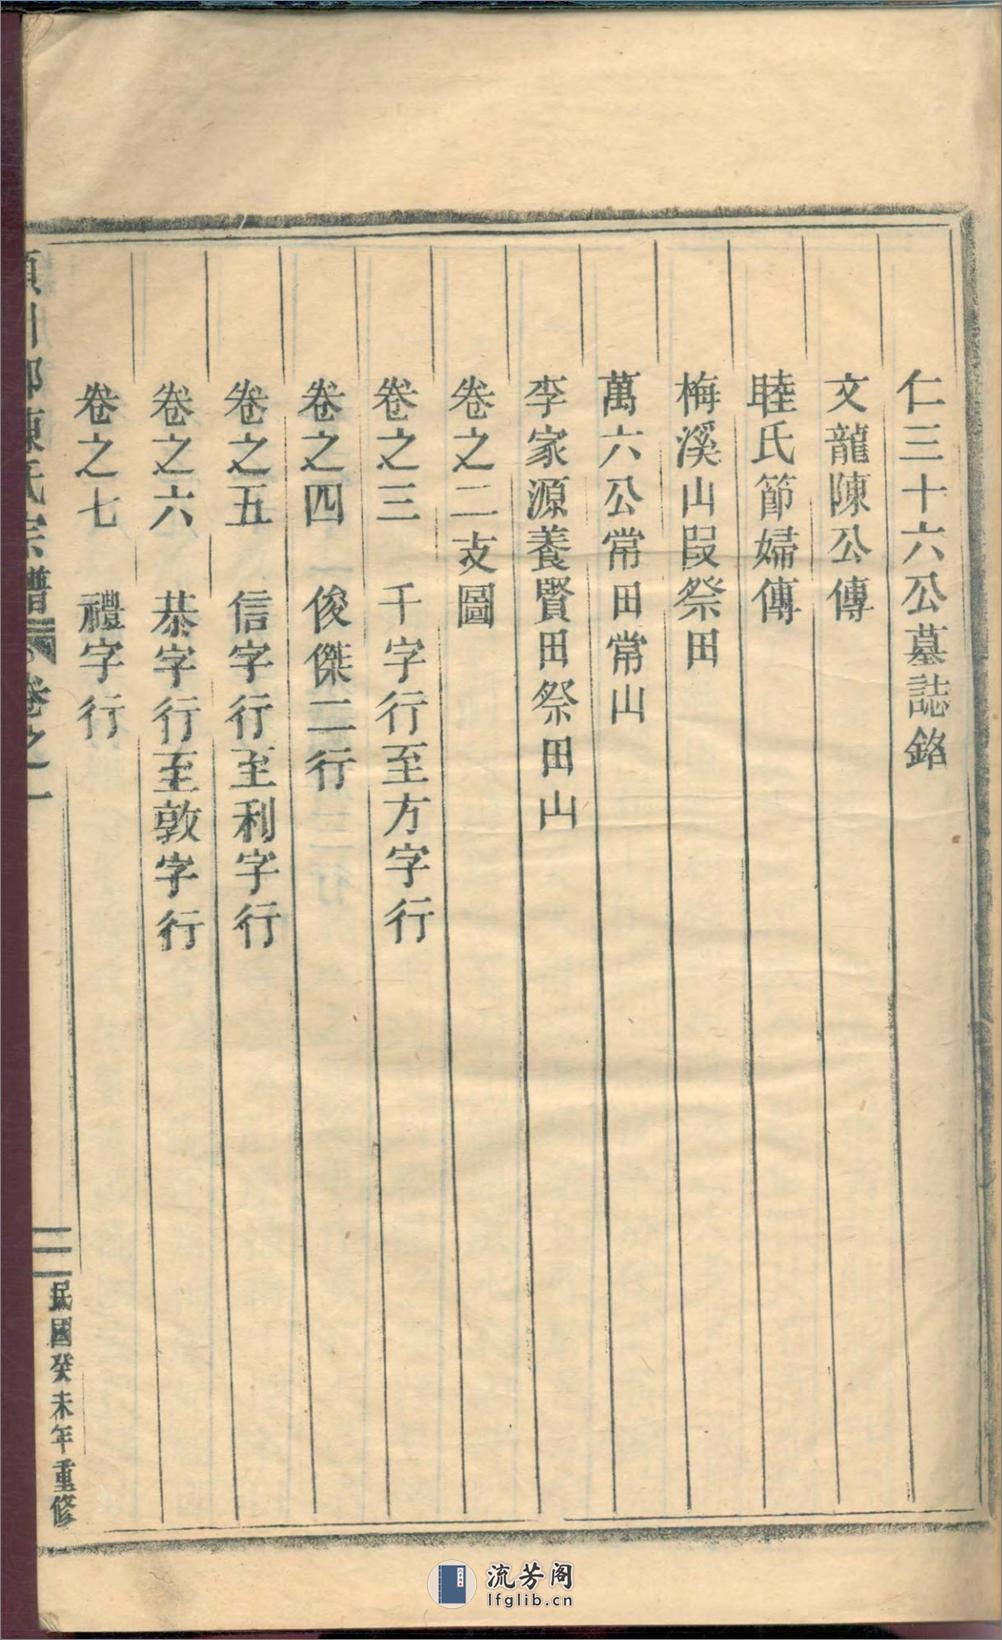 仁三十六公墓誌銘
文龍陳公傳
睦氏節婦傳
梅溪山段祭田
萬六公常田常山
李家源養賢田祭田山
卷之二支圖
卷之三　千字行至方字行
卷之四　俊傑二行
卷之五　信字行至利字行
卷之六　恭字行至敦字行
卷之七　禮字行
川郡陳氏宗譜　卷之一
二
民國癸未年重修
流芳阁
lfglib.cn